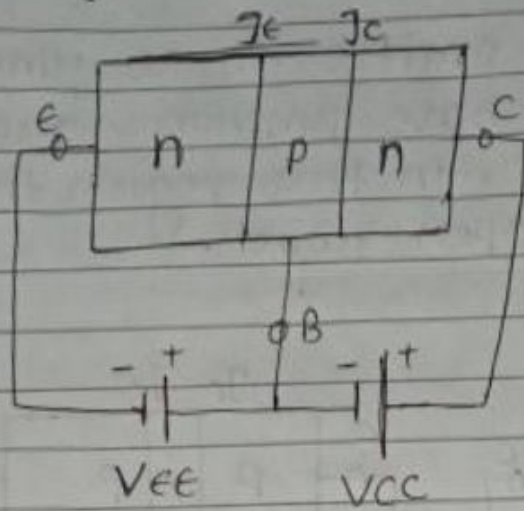 JE JC
E n p n C
B
- + - +
VEE VCC